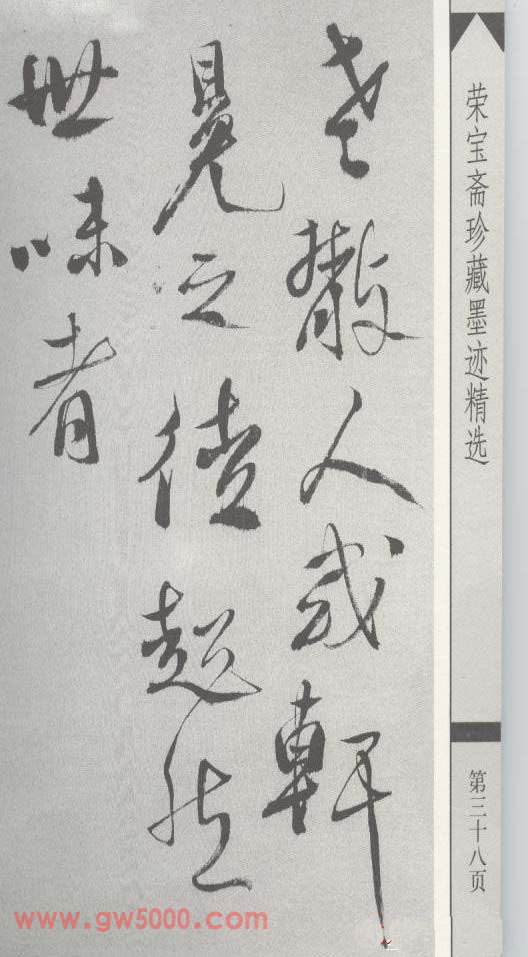 荣宝斋珍藏墨迹精选
第三十八页
老散人或軒
冕之徒超然
世味者
www.gw5000.com